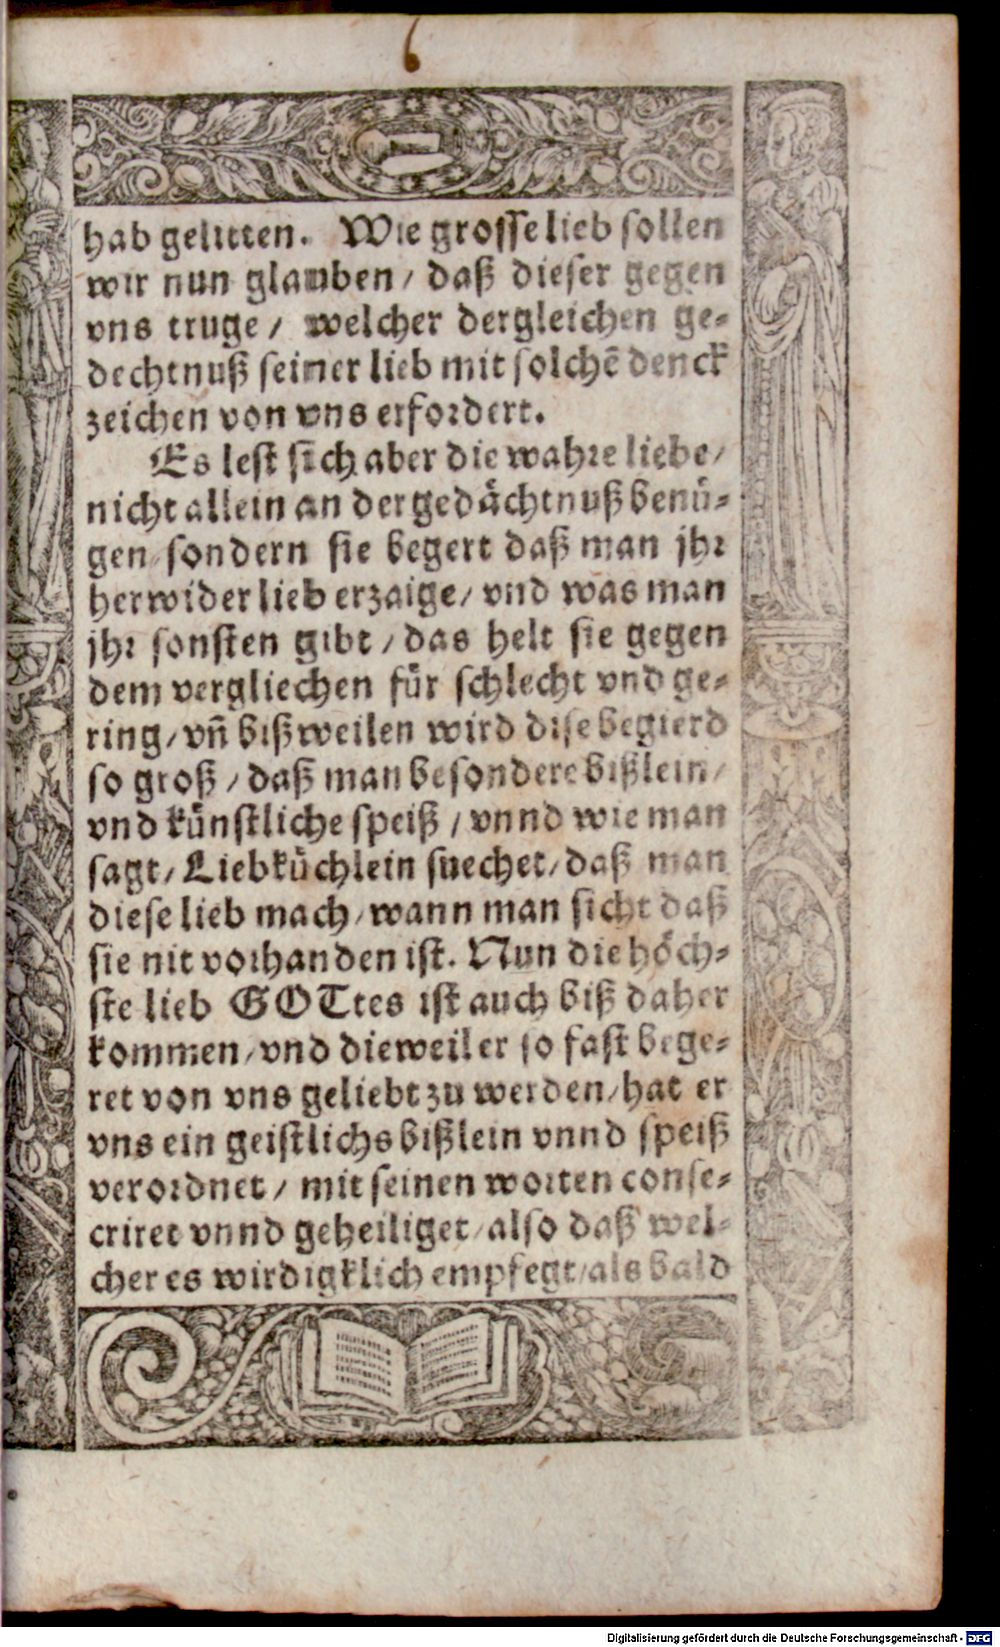 hab gelitten. Wie grosse lieb sollen
wir nun glauben / daß dieser gegen
vns truge / welcher dergleichen ge-
dechtnuß seiner lieb mit solchẽ denck
zeichen von vns erfordert.
Es lest sich aber die wahre liebe /
nicht allein an der gedåchtnuß benů-
gen / sondern sie begert daß man jhr
herwider lieb erzaige / vnd was man
jhr sonsten gibt / das helt sie gegen
dem vergliechen fůr schlecht vnd ge-
ring / vñ bißweilen wird dise begierd
so groß / daß man besondere bißlein /
vnd kůnstliche speiß / vnnd wie man
sagt / Liebkůchlein suechet / daß man
diese lieb mach / wann man sicht daß
sie nit vorhanden ist. Nun die hôch-
ste lieb GOTtes ist auch biß daher
kommen / vnd dieweil er so fast bege-
ret von vns geliebt zu werden / hat er
vns ein geistlichs bißlein vnnd speiß
verordnet / mit seinen worten conse-
criret vnnd geheiliget / also daß wel-
cher es wirdigklich empfegt / als bald
Digitalisierung gefördert durch die Deutsche Forschungsgemeinschaft - DFG